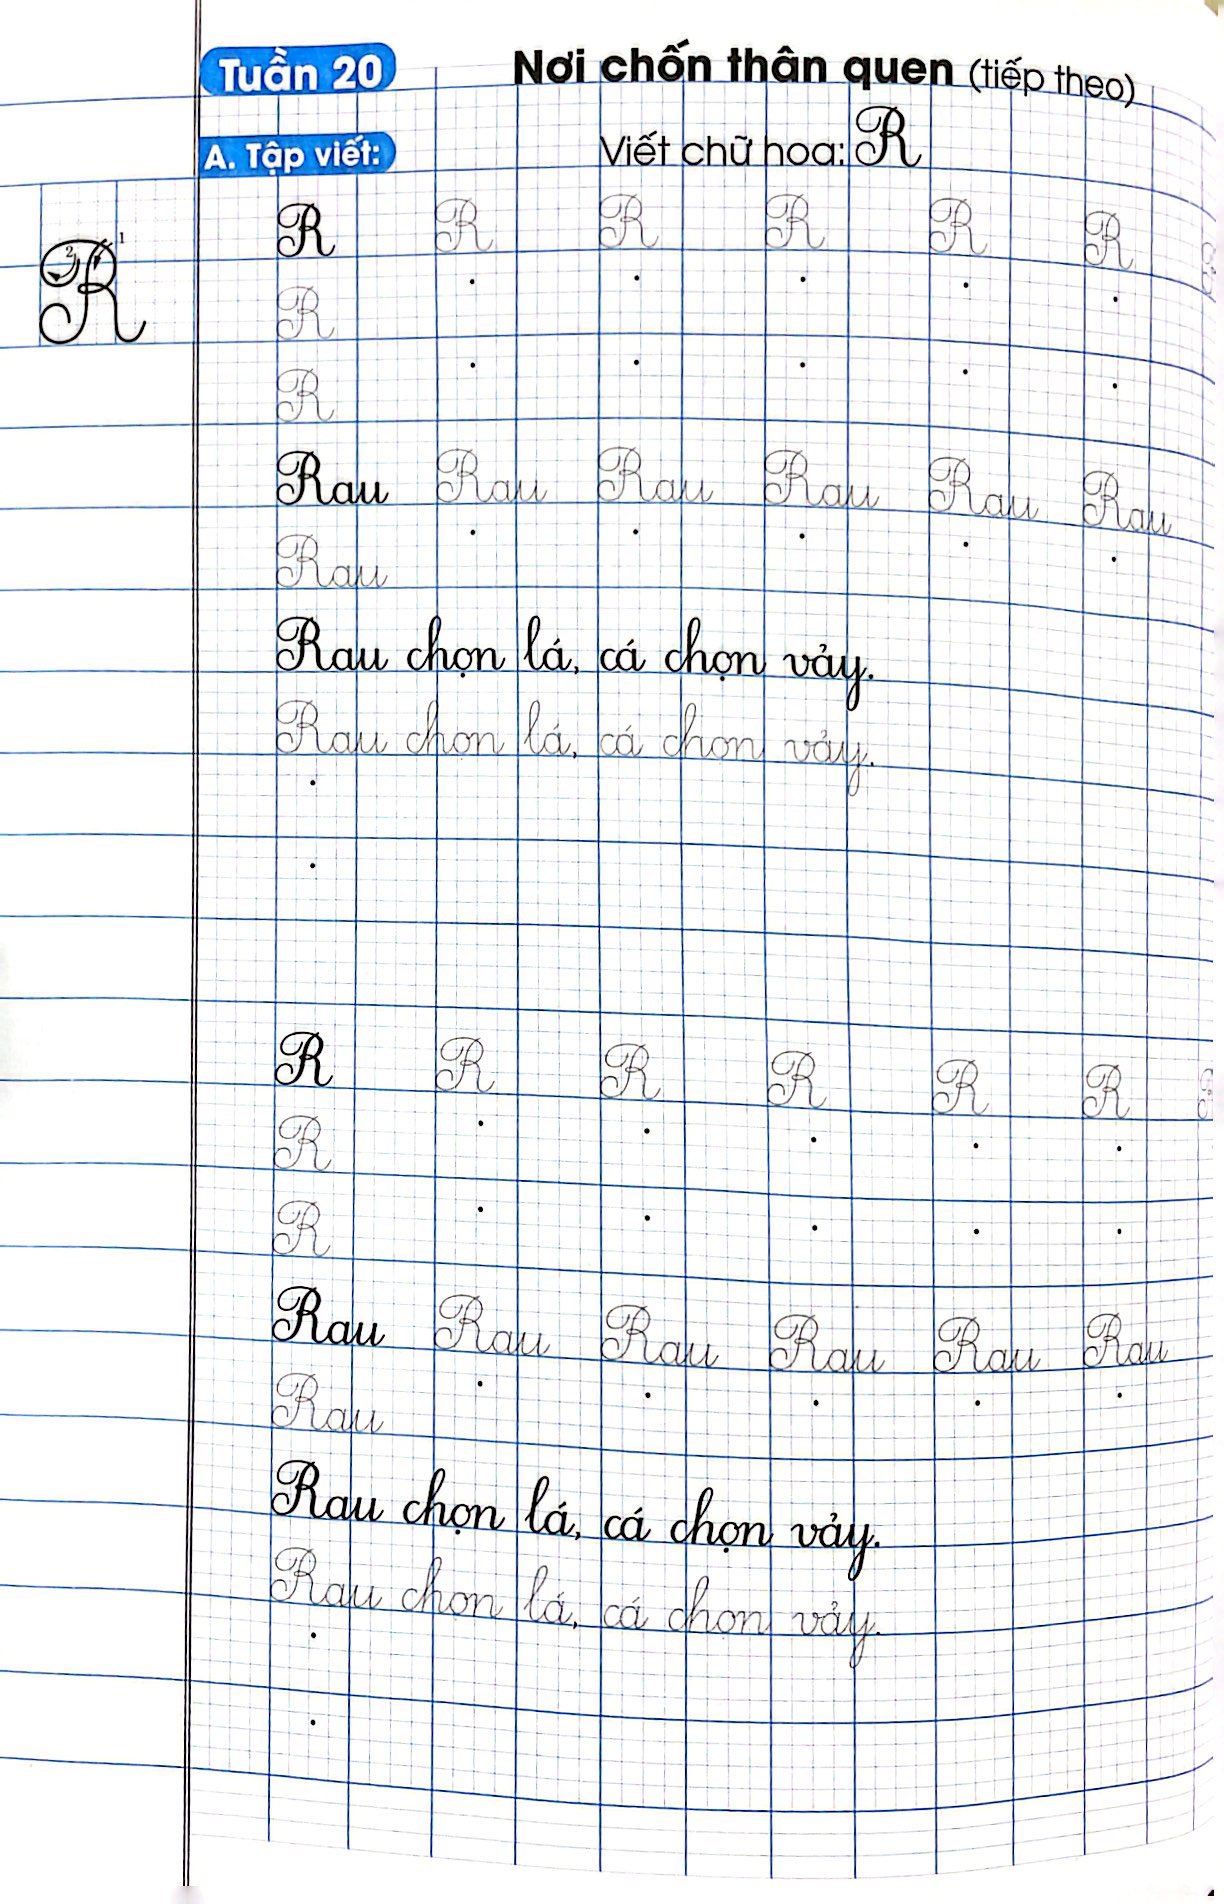 Tuần 20 Nơi chốn thân quen (tiếp theo)
A. Tập viết: Viết chữ hoa: R
R R R R R R R
R 1 2
R
R
Rau Rau Rau Rau Rau Rau
Rau
Rau chọn lá, cá chọn vảy.
Rau chọn lá, cá chọn vảy.
R R R R R R R
R
R
Rau Rau Rau Rau Rau Rau
Rau
Rau chọn lá, cá chọn vảy.
Rau chọn lá, cá chọn vảy.